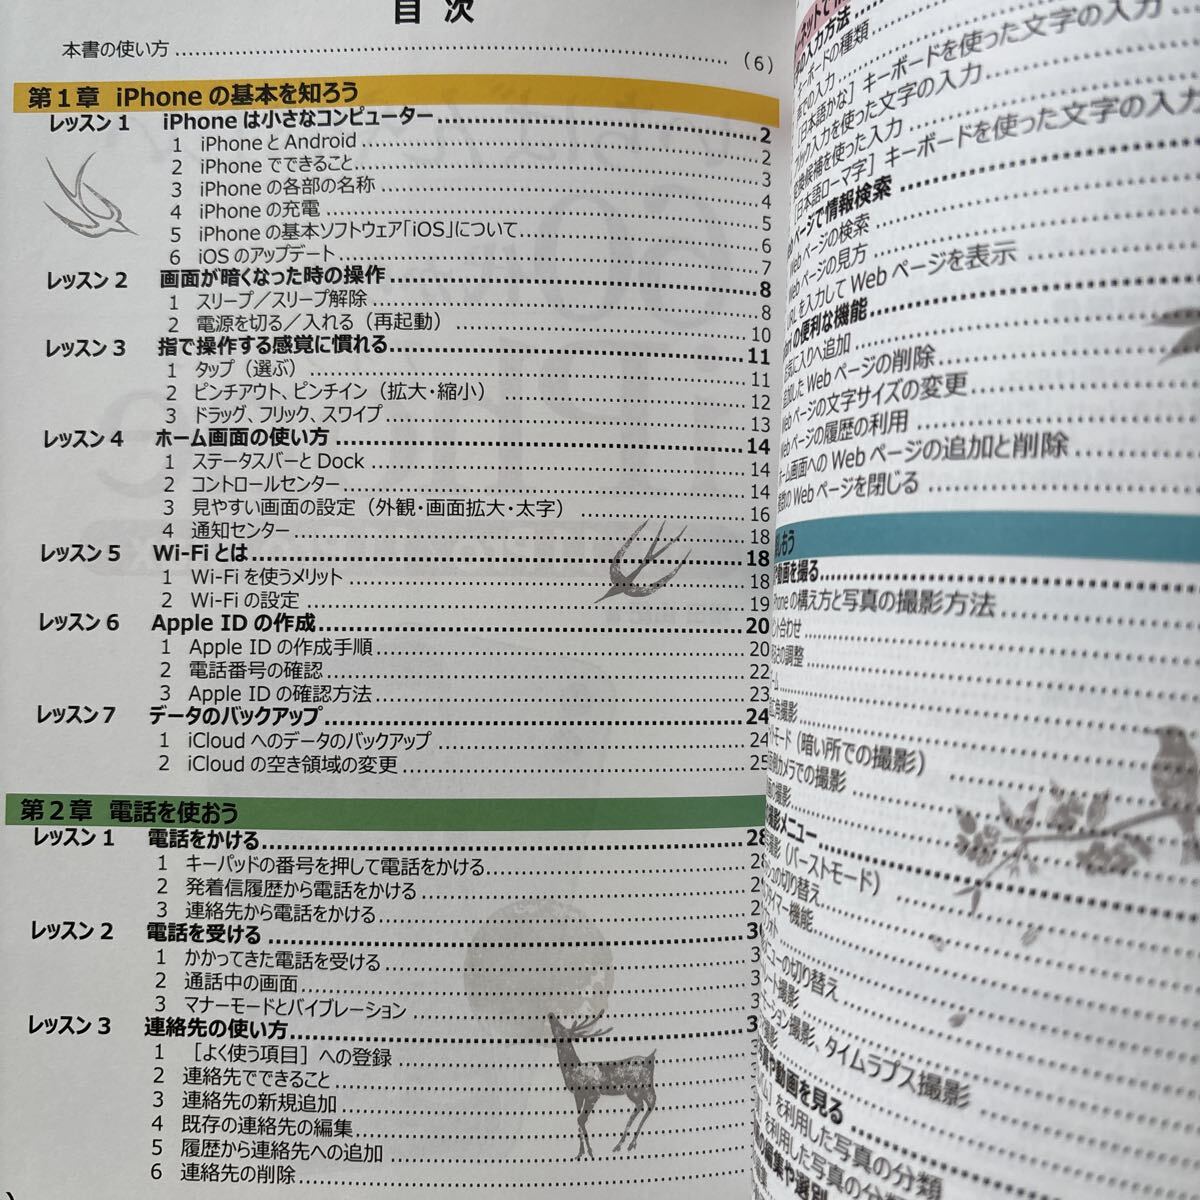 目 次
本書の使い方 (6)
第1章 iPhoneの基本を知ろう
レッスン1 iPhoneは小さなコンピューター 2
1 iPhoneとAndroid 2
2 iPhoneでできること 3
3 iPhoneの各部の名称 4
4 iPhoneの充電 5
5 iPhoneの基本ソフトウェア「iOS」について 6
6 iOSのアップデート 7
レッスン2 画面が暗くなった時の操作 8
1 スリープ／スリープ解除 8
2 電源を切る／入れる（再起動） 10
レッスン3 指で操作する感覚に慣れる 11
1 タップ（選ぶ） 11
2 ピンチアウト、ピンチイン（拡大・縮小） 12
3 ドラッグ、フリック、スワイプ 13
レッスン4 ホーム画面の使い方 14
1 ステータスバーとDock 14
2 コントロールセンター 14
3 見やすい画面の設定（外観・画面拡大・太字） 16
4 通知センター 18
レッスン5 Wi-Fiとは 18
1 Wi-Fiを使うメリット 18
2 Wi-Fiの設定 19
レッスン6 Apple IDの作成 20
1 Apple IDの作成手順 20
2 電話番号の確認 22
3 Apple IDの確認方法 23
レッスン7 データのバックアップ 24
1 iCloudへのデータのバックアップ 24
2 iCloudの空き領域の変更 25
第2章 電話を使おう
レッスン1 電話をかける 28
1 キーパッドの番号を押して電話をかける 28
2 発着信履歴から電話をかける 2
3 連絡先から電話をかける 2
レッスン2 電話を受ける 3
1 かかってきた電話を受ける 3
2 通話中の画面 3
3 マナーモードとバイブレーション 3
レッスン3 連絡先の使い方 3
1 ［よく使う項目］への登録
2 連絡先でできること
3 連絡先の新規追加
4 既存の連絡先の編集
5 履歴から連絡先への追加
6 連絡先の削除
の入力方法
キーボードの種類
での入力
［日本語かな］キーボードを使った文字の入力
入力を使った文字の入力
変換候補を使った入力
［日本語ローマ字］キーボードを使った文字の入力
ページで情報検索
Webページの検索
Webページの見方
URLを入力してWebページを表示
の便利な機能
気に入りへ追加
追加したWebページの削除
Webページの文字サイズの変更
Webページの履歴の利用
ホーム画面へのWebページの追加と削除
複数のWebページを閉じる
しもう
動画を撮る
iPhoneの構え方と写真の撮影方法
ピント合わせ
るさの調整
ーム
広角撮影
トモード（暗い所での撮影）
側カメラでの撮影
の撮影
撮影メニュー
撮影（バーストモード）
の切り替え
タイマー機能
フォト
メニューの切り替え
撮影
モーション撮影、タイムラプス撮影
撮影
や動画を見る
を利用した写真の分類
を利用した写真の分
の編集や選別